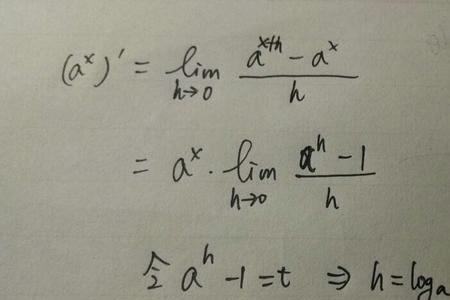 (aˣ)' = lim h→0 (aˣ⁺ʰ - aˣ)/h
= aˣ · lim h→0 (aʰ - 1)/h
令 aʰ - 1 = t ⇒ h = logₐ